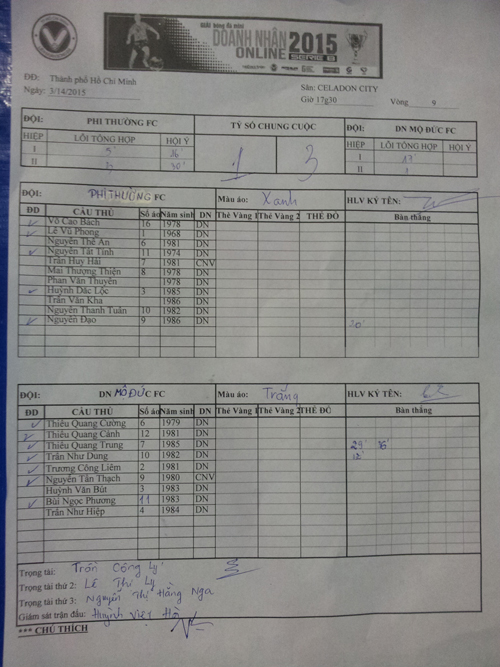 GIẢI BÓNG ĐÁ MINI
DOANH NHÂN 2015
ONLINE SERIE B
ĐĐ: Thành phố Hồ Chí Minh
Sân: CELADON CITY
Ngày: 3/14/2015
Giờ 17g30 Vòng 9
ĐỘI: PHI THƯỜNG FC TỶ SỐ CHUNG CUỘC ĐỘI: DN MỘ ĐỨC FC
HIỆP LỖI TỔNG HỢP HỘI Ý HIỆP LỖI TỔNG HỢP HỘI Ý
I 16 1 3 I 17'
II 30' II
ĐỘI: PHI THƯỜNG FC Màu áo: Xanh HLV KÝ TÊN:
ĐD CẦU THỦ Số áo Năm sinh DN Thẻ Vàng 1 Thẻ Vàng 2 THẺ ĐỎ Bàn thắng
Võ Cao Bách 16 1978 DN
Lê Vũ Phong 1 1968 DN
Nguyễn Thế An 6 1981 DN
Nguyễn Tất Tính 11 1974 DN
Trần Huy Hải 7 1981 CNV
Mai Thượng Thiện 8 1978 DN
Phan Văn Thuyên 1978 DN
Huỳnh Đắc Lộc 3 1985 DN
Trần Văn Kha 1986 DN
Nguyễn Thanh Tuấn 10 1982 DN
Nguyễn Đạo 9 1986 DN
ĐỘI: DN MỘ ĐỨC FC Màu áo: Trắng HLV KÝ TÊN:
ĐD CẦU THỦ Số áo Năm sinh DN Thẻ Vàng 1 Thẻ Vàng 2 THẺ ĐỎ Bàn thắng
Thiều Quang Cường 6 1979 DN
Thiều Quang Cảnh 12 1981 DN
Thiều Quang Trung 7 1985 DN 29'
Trần Như Dung 10 1982 DN 12'
Trương Công Liêm 2 1981 DN
Nguyễn Tấn Thạch 9 1980 CNV
Huỳnh Văn Bút 3 1983 DN
Bùi Ngọc Phương 11 1983 DN
Trần Như Hiệp 4 1984 DN
Trọng tài: Trần Công Lý
Trọng tài thứ 2: Lê Thị Ly
Trọng tài thứ 3: Nguyễn Thị Hằng Nga
Giám sát trận đấu: Huỳnh Việt Hà
*** CHÚ THÍCH